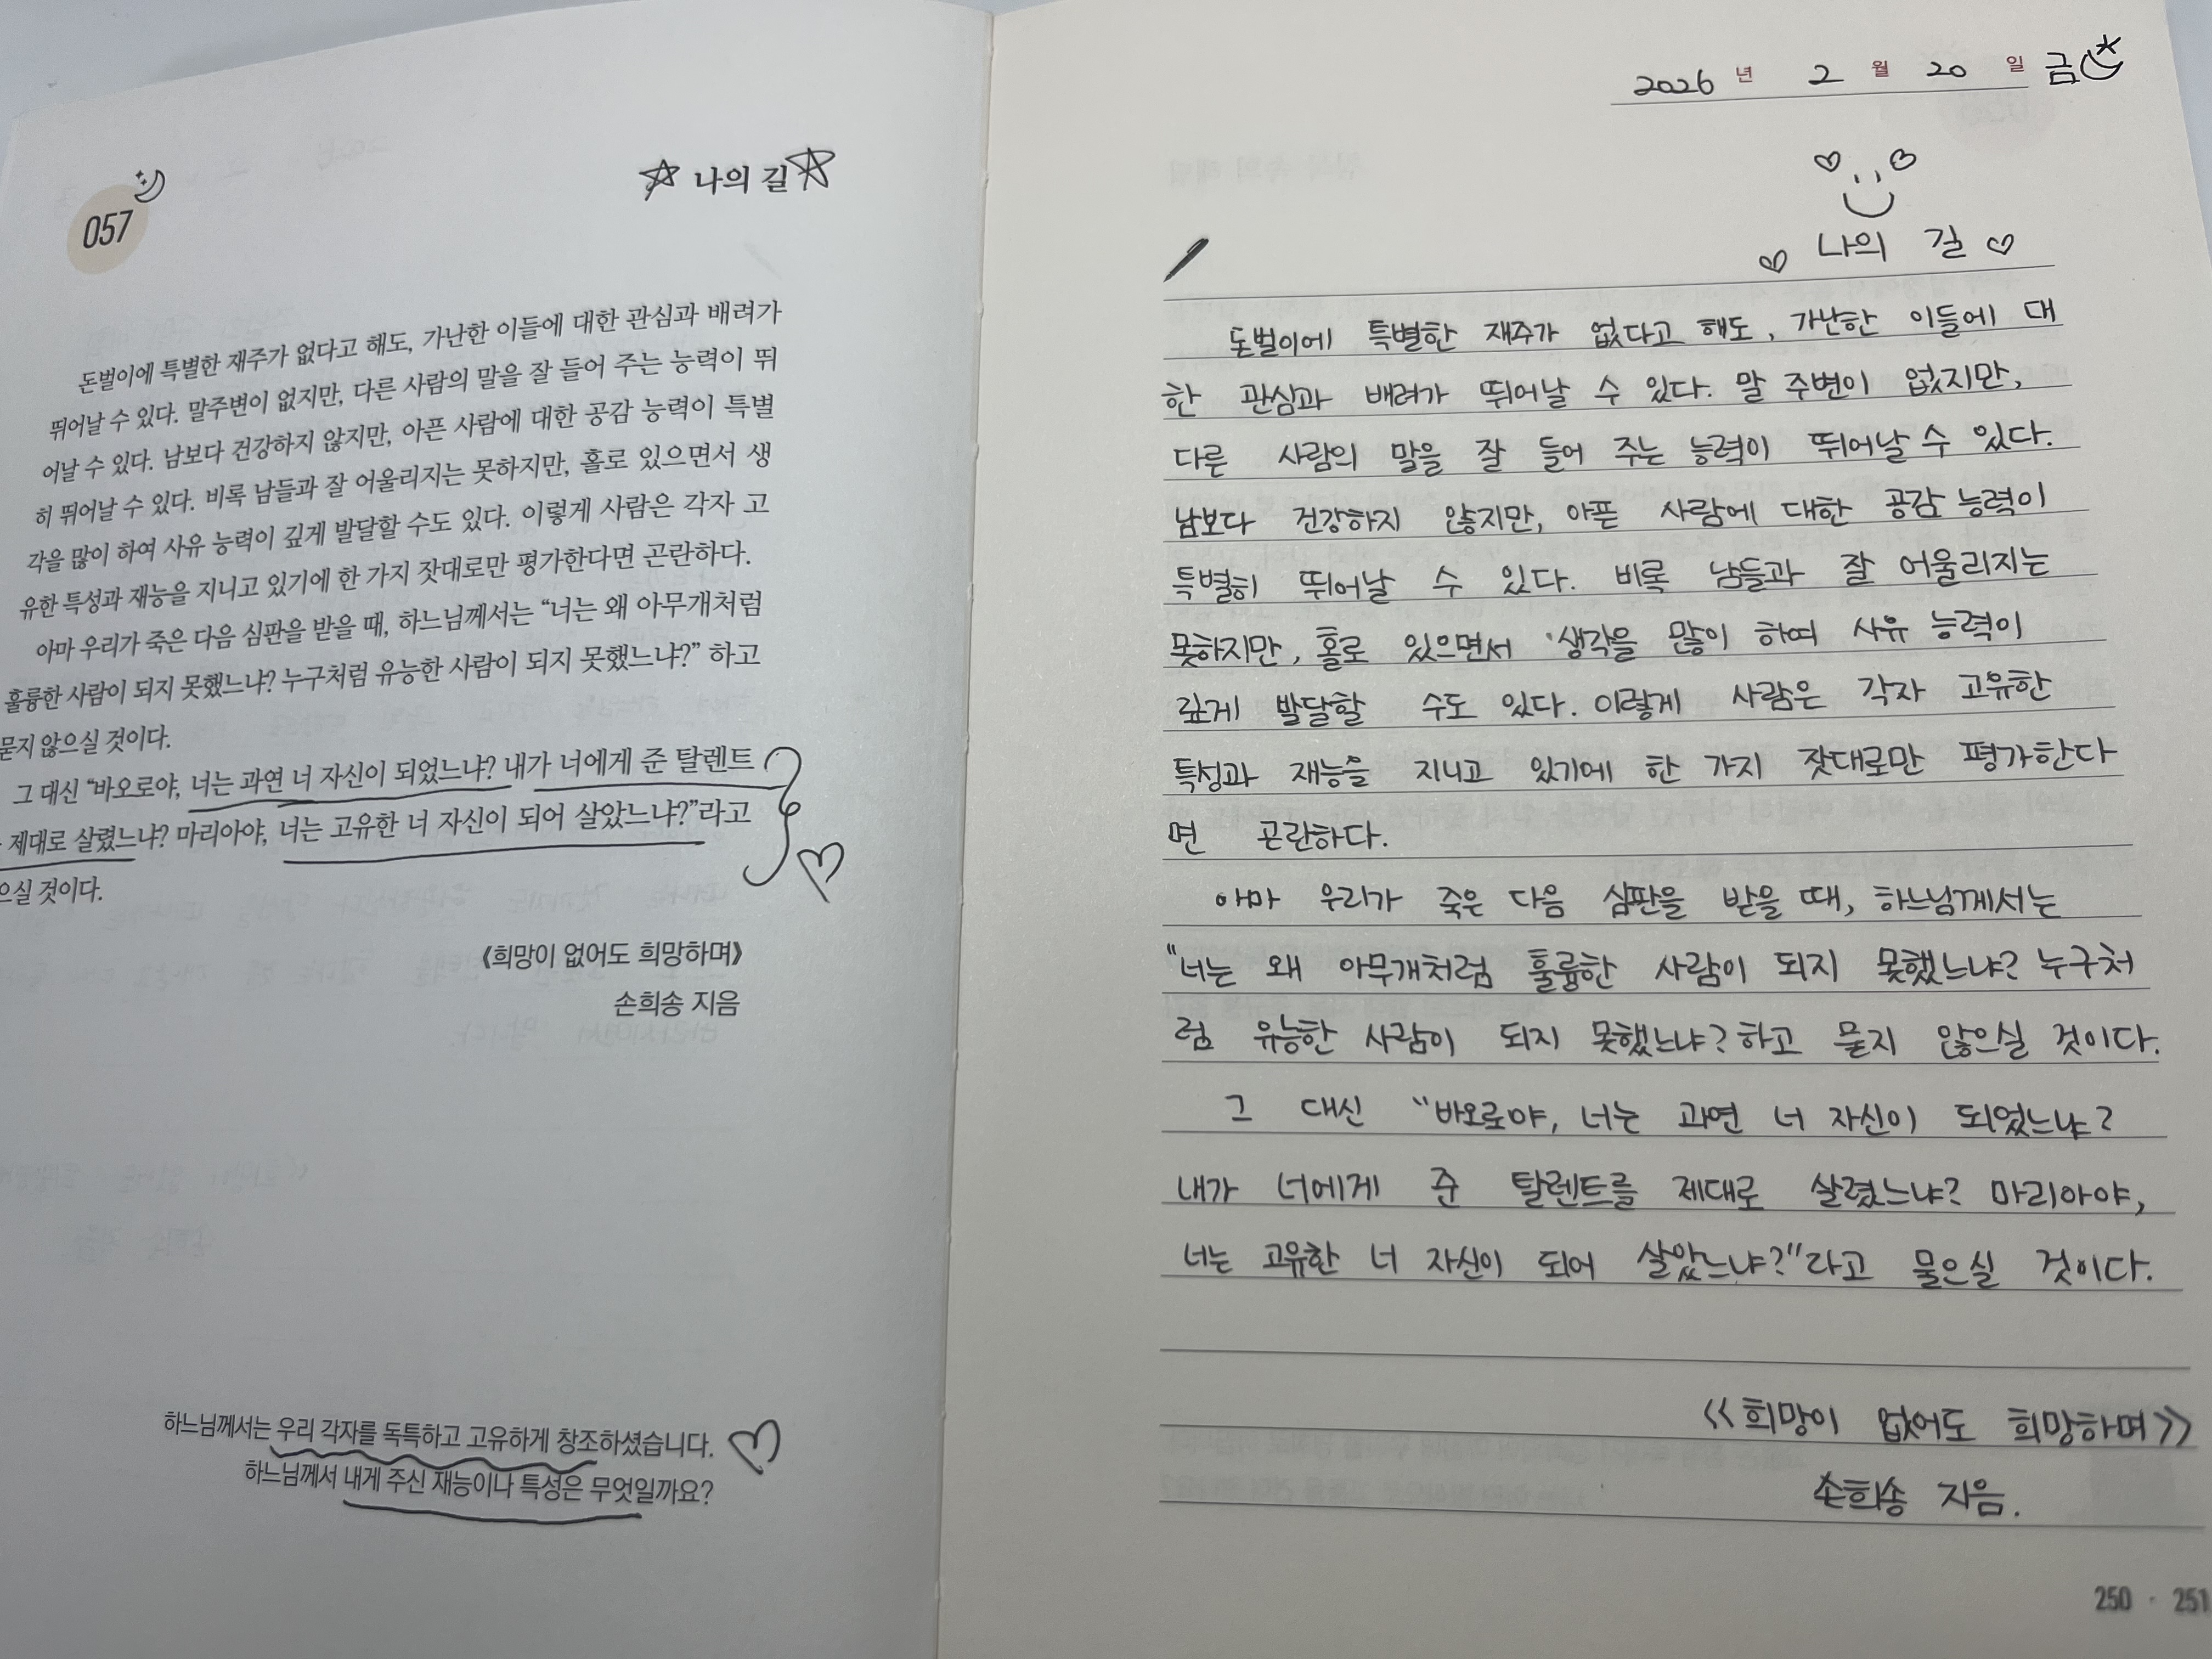 057
나의 길
돈벌이에 특별한 재주가 없다고 해도, 가난한 이들에 대한 관심과 배려가
뛰어날 수 있다. 말주변이 없지만, 다른 사람의 말을 잘 들어 주는 능력이 뛰
어날 수 있다. 남보다 건강하지 않지만, 아픈 사람에 대한 공감 능력이 특별
히 뛰어날 수 있다. 비록 남들과 잘 어울리지는 못하지만, 홀로 있으면서 생
각을 많이 하여 사유 능력이 깊게 발달할 수도 있다. 이렇게 사람은 각자 고
유한 특성과 재능을 지니고 있기에 한 가지 잣대로만 평가한다면 곤란하다.
아마 우리가 죽은 다음 심판을 받을 때, 하느님께서는 “너는 왜 아무개처럼
훌륭한 사람이 되지 못했느냐? 누구처럼 유능한 사람이 되지 못했느냐?” 하고
묻지 않으실 것이다.
그 대신 “바오로야, 너는 과연 너 자신이 되었느냐? 내가 너에게 준 탈렌트
제대로 살렸느냐? 마리아야, 너는 고유한 너 자신이 되어 살았느냐?”라고
으실 것이다.
《희망이 없어도 희망하며》
손희송 지음
하느님께서는 우리 각자를 독특하고 고유하게 창조하셨습니다.
하느님께서 내게 주신 재능이나 특성은 무엇일까요?
2026 년 2 월 20 일 금
나의 길
돈벌이에 특별한 재주가 없다고 해도, 가난한 이들에 대
한 관심과 배려가 뛰어날 수 있다. 말 주변이 없지만,
다른 사람의 말을 잘 들어 주는 능력이 뛰어날 수 있다.
남보다 건강하지 않지만, 아픈 사람에 대한 공감 능력이
특별히 뛰어날 수 있다. 비록 남들과 잘 어울리지는
못하지만, 홀로 있으면서 생각을 많이 하여 사유 능력이
깊게 발달할 수도 있다. 이렇게 사람은 각자 고유한
특성과 재능을 지니고 있기에 한 가지 잣대로만 평가한다
면 곤란하다.
아마 우리가 죽은 다음 심판을 받을 때, 하느님께서는
“너는 왜 아무개처럼 훌륭한 사람이 되지 못했느냐? 누구처
럼 유능한 사람이 되지 못했느냐? 하고 묻지 않으실 것이다.
그 대신 “바오로야, 너는 과연 너 자신이 되었느냐?
내가 너에게 준 탈렌트를 제대로 살렸느냐? 마리아야,
너는 고유한 너 자신이 되어 살았느냐?”라고 물으실 것이다.
<<희망이 없어도 희망하며>>
손희송 지음.
250 · 251